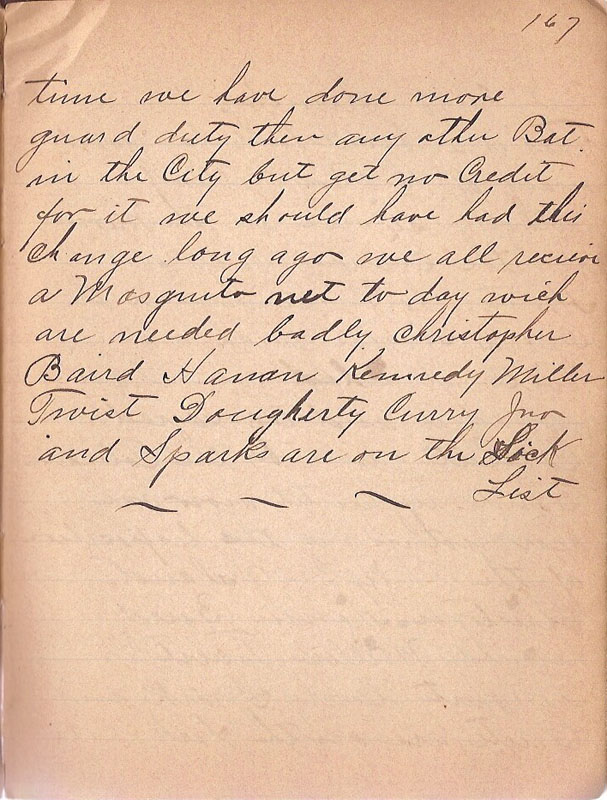 167
time we have done more
guard duty then any other Bat.
in the City but get no Credit
for it we should have had this
change long ago we all recieve
a Mosquito net to day wich
are needed badly Christopher
Baird Hanan Kennedy Miller
Twist Dougherty Curry Jno
and Sparks are on the Sick
List